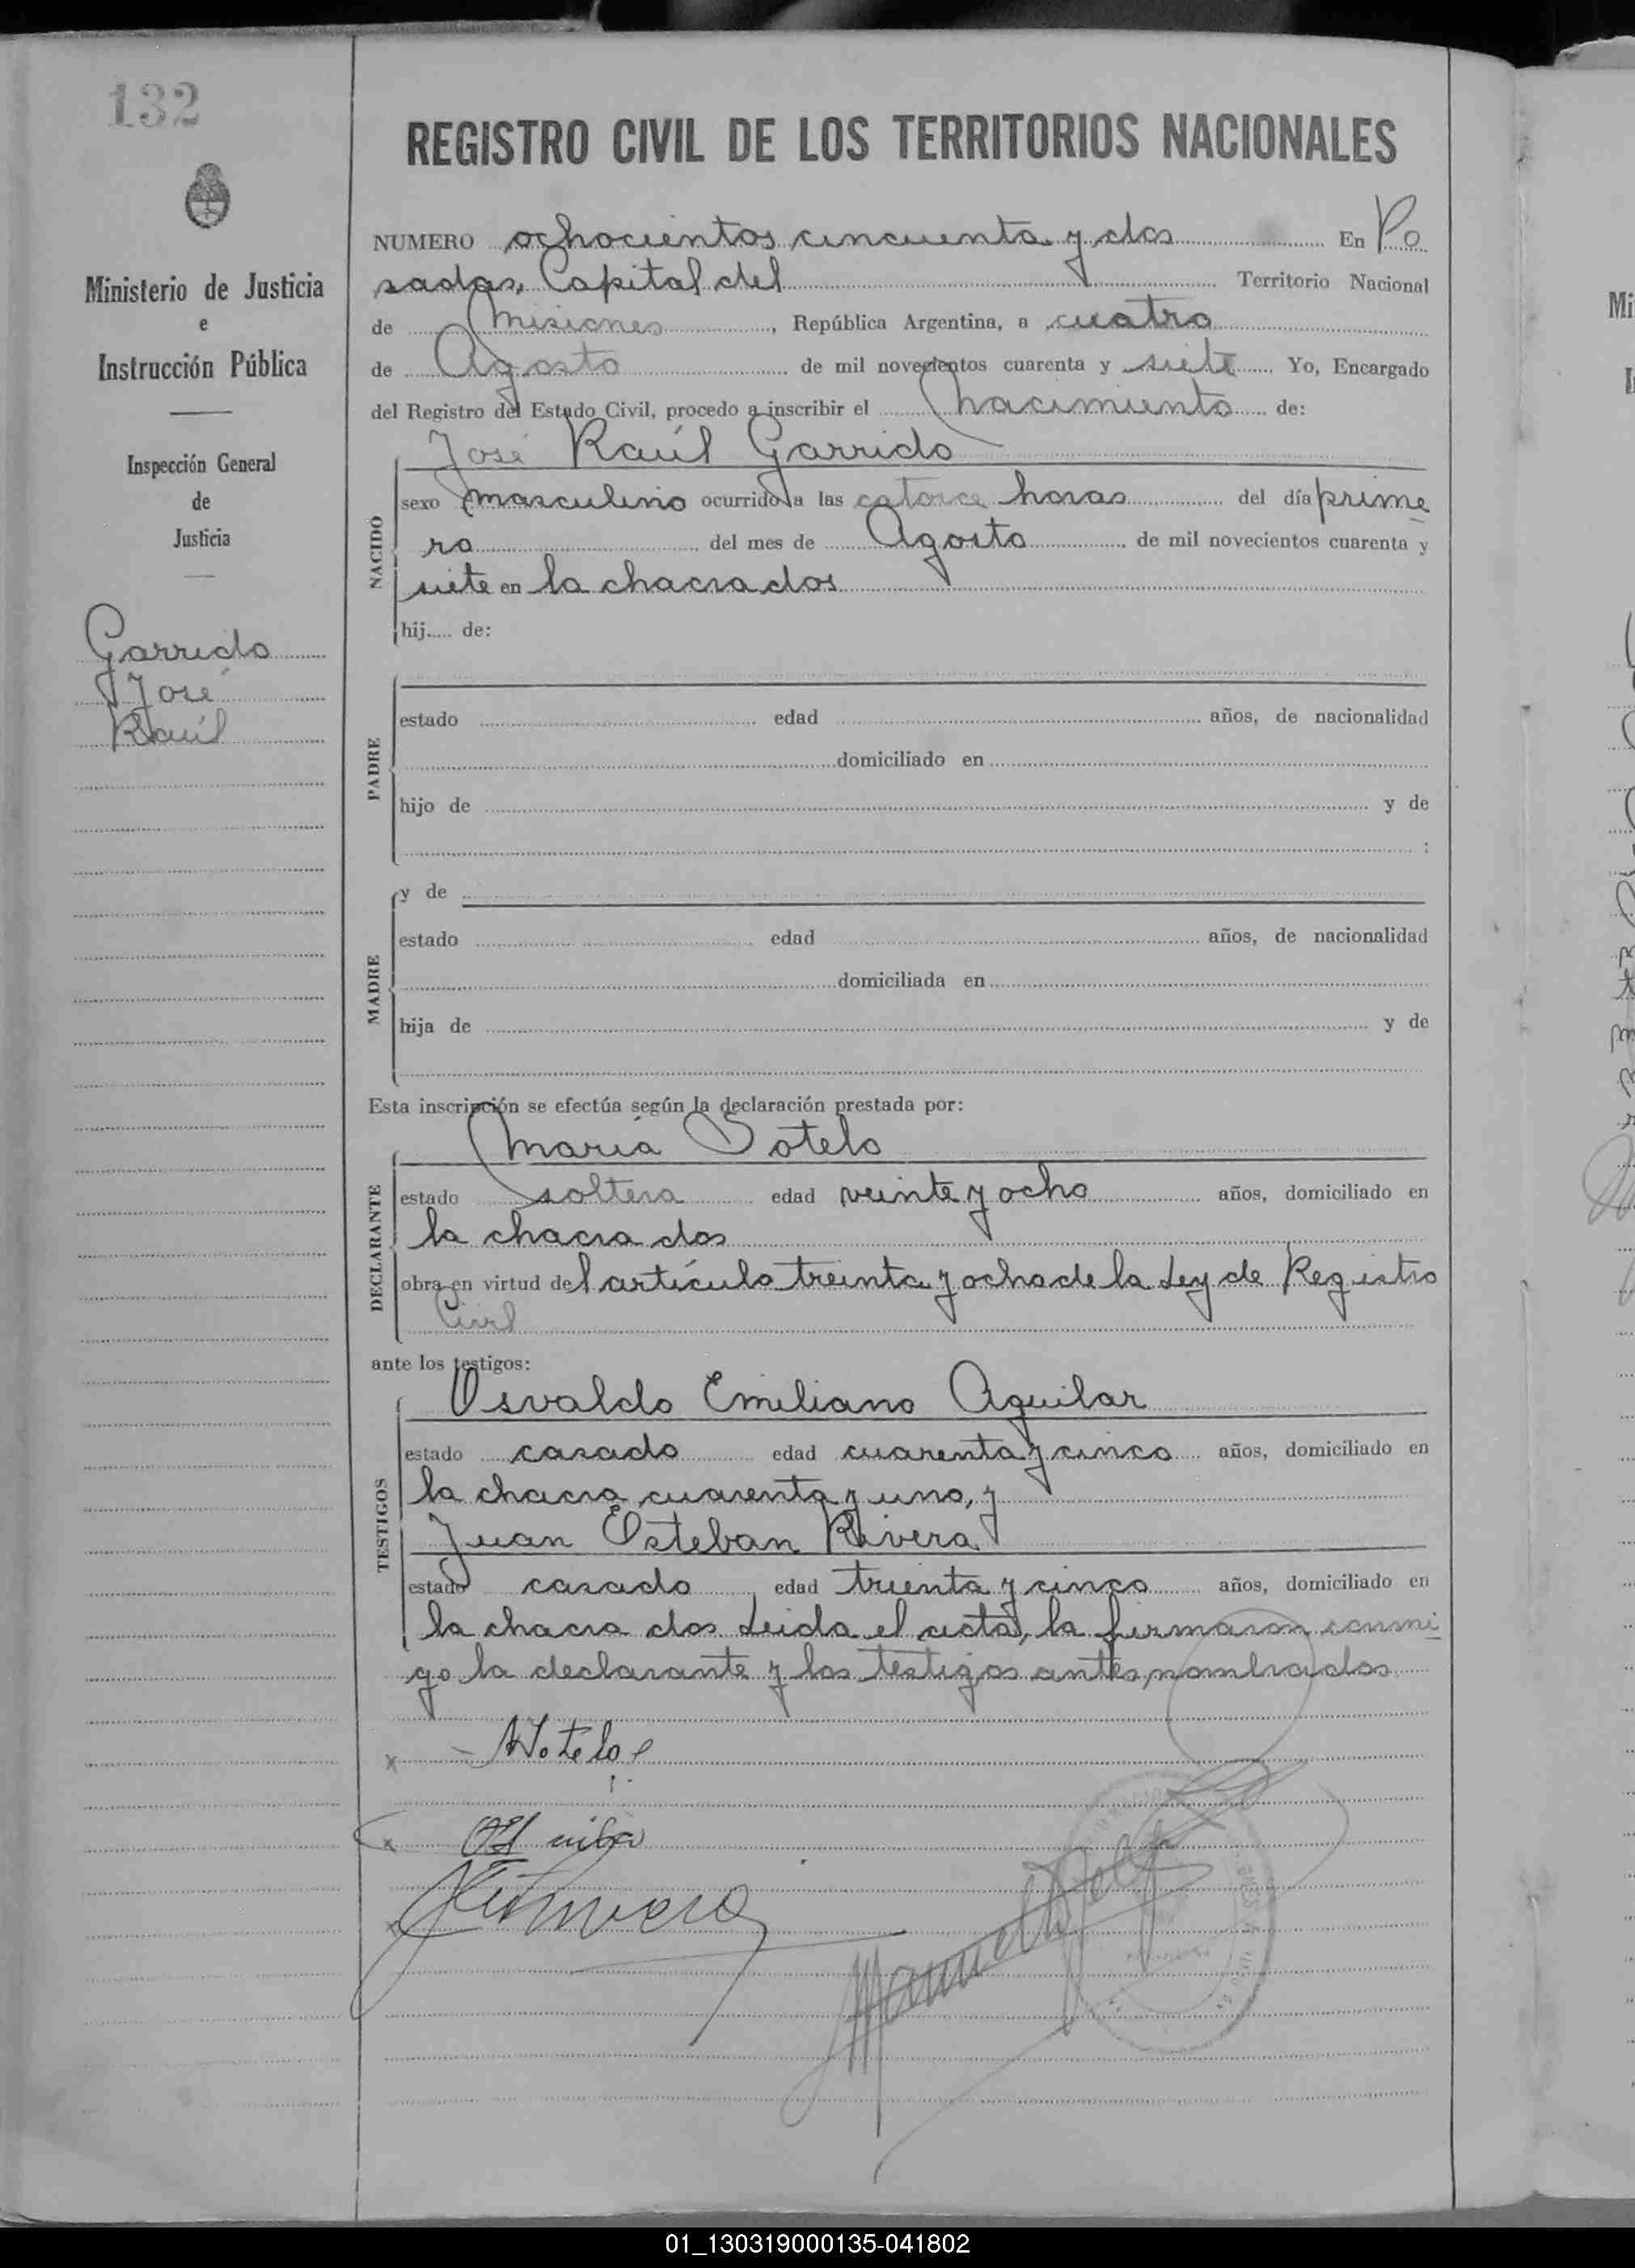 132
REGISTRO CIVIL DE LOS TERRITORIOS NACIONALES
Ministerio de Justicia
e
Instrucción Pública
Inspección General
de
Justicia
Garrido
José
Raúl
NUMERO ochocientos cincuenta y dos En Po
sadas, Capital del Territorio Nacional
de Misiones, República Argentina, a cuatro
de Agosto de mil novecientos cuarenta y siete Yo, Encargado
del Registro del Estado Civil, procedo a inscribir el nacimiento de:
José Raúl Garrido
NACIDO
sexo masculino ocurrido a las catorce horas del día prime
ro del mes de Agosto de mil novecientos cuarenta y
siete en la chacra dos
hij..... de:
PADRE
estado edad años, de nacionalidad
domiciliado en
hijo de y de
:
MADRE
y de
estado edad años, de nacionalidad
domiciliada en
hija de y de
Esta inscripción se efectúa según la declaración prestada por:
María Sotelo
DECLARANTE
estado soltera edad veinte y ocho años, domiciliado en
la chacra dos
obra en virtud del artículo treinta y ocho de la Ley de Registro
Civil
ante los testigos:
TESTIGOS
Osvaldo Emiliano Aguilar
estado casado edad cuarenta y cinco años, domiciliado en
la chacra cuarenta y uno, y
Juan Esteban Rivera
estado casado edad treinta y cinco años, domiciliado en
la chacra dos Leida el acta, la firmaron conmi
go la declarante y los testigos antes nombrados
x
x
x
01_130319000135-041802